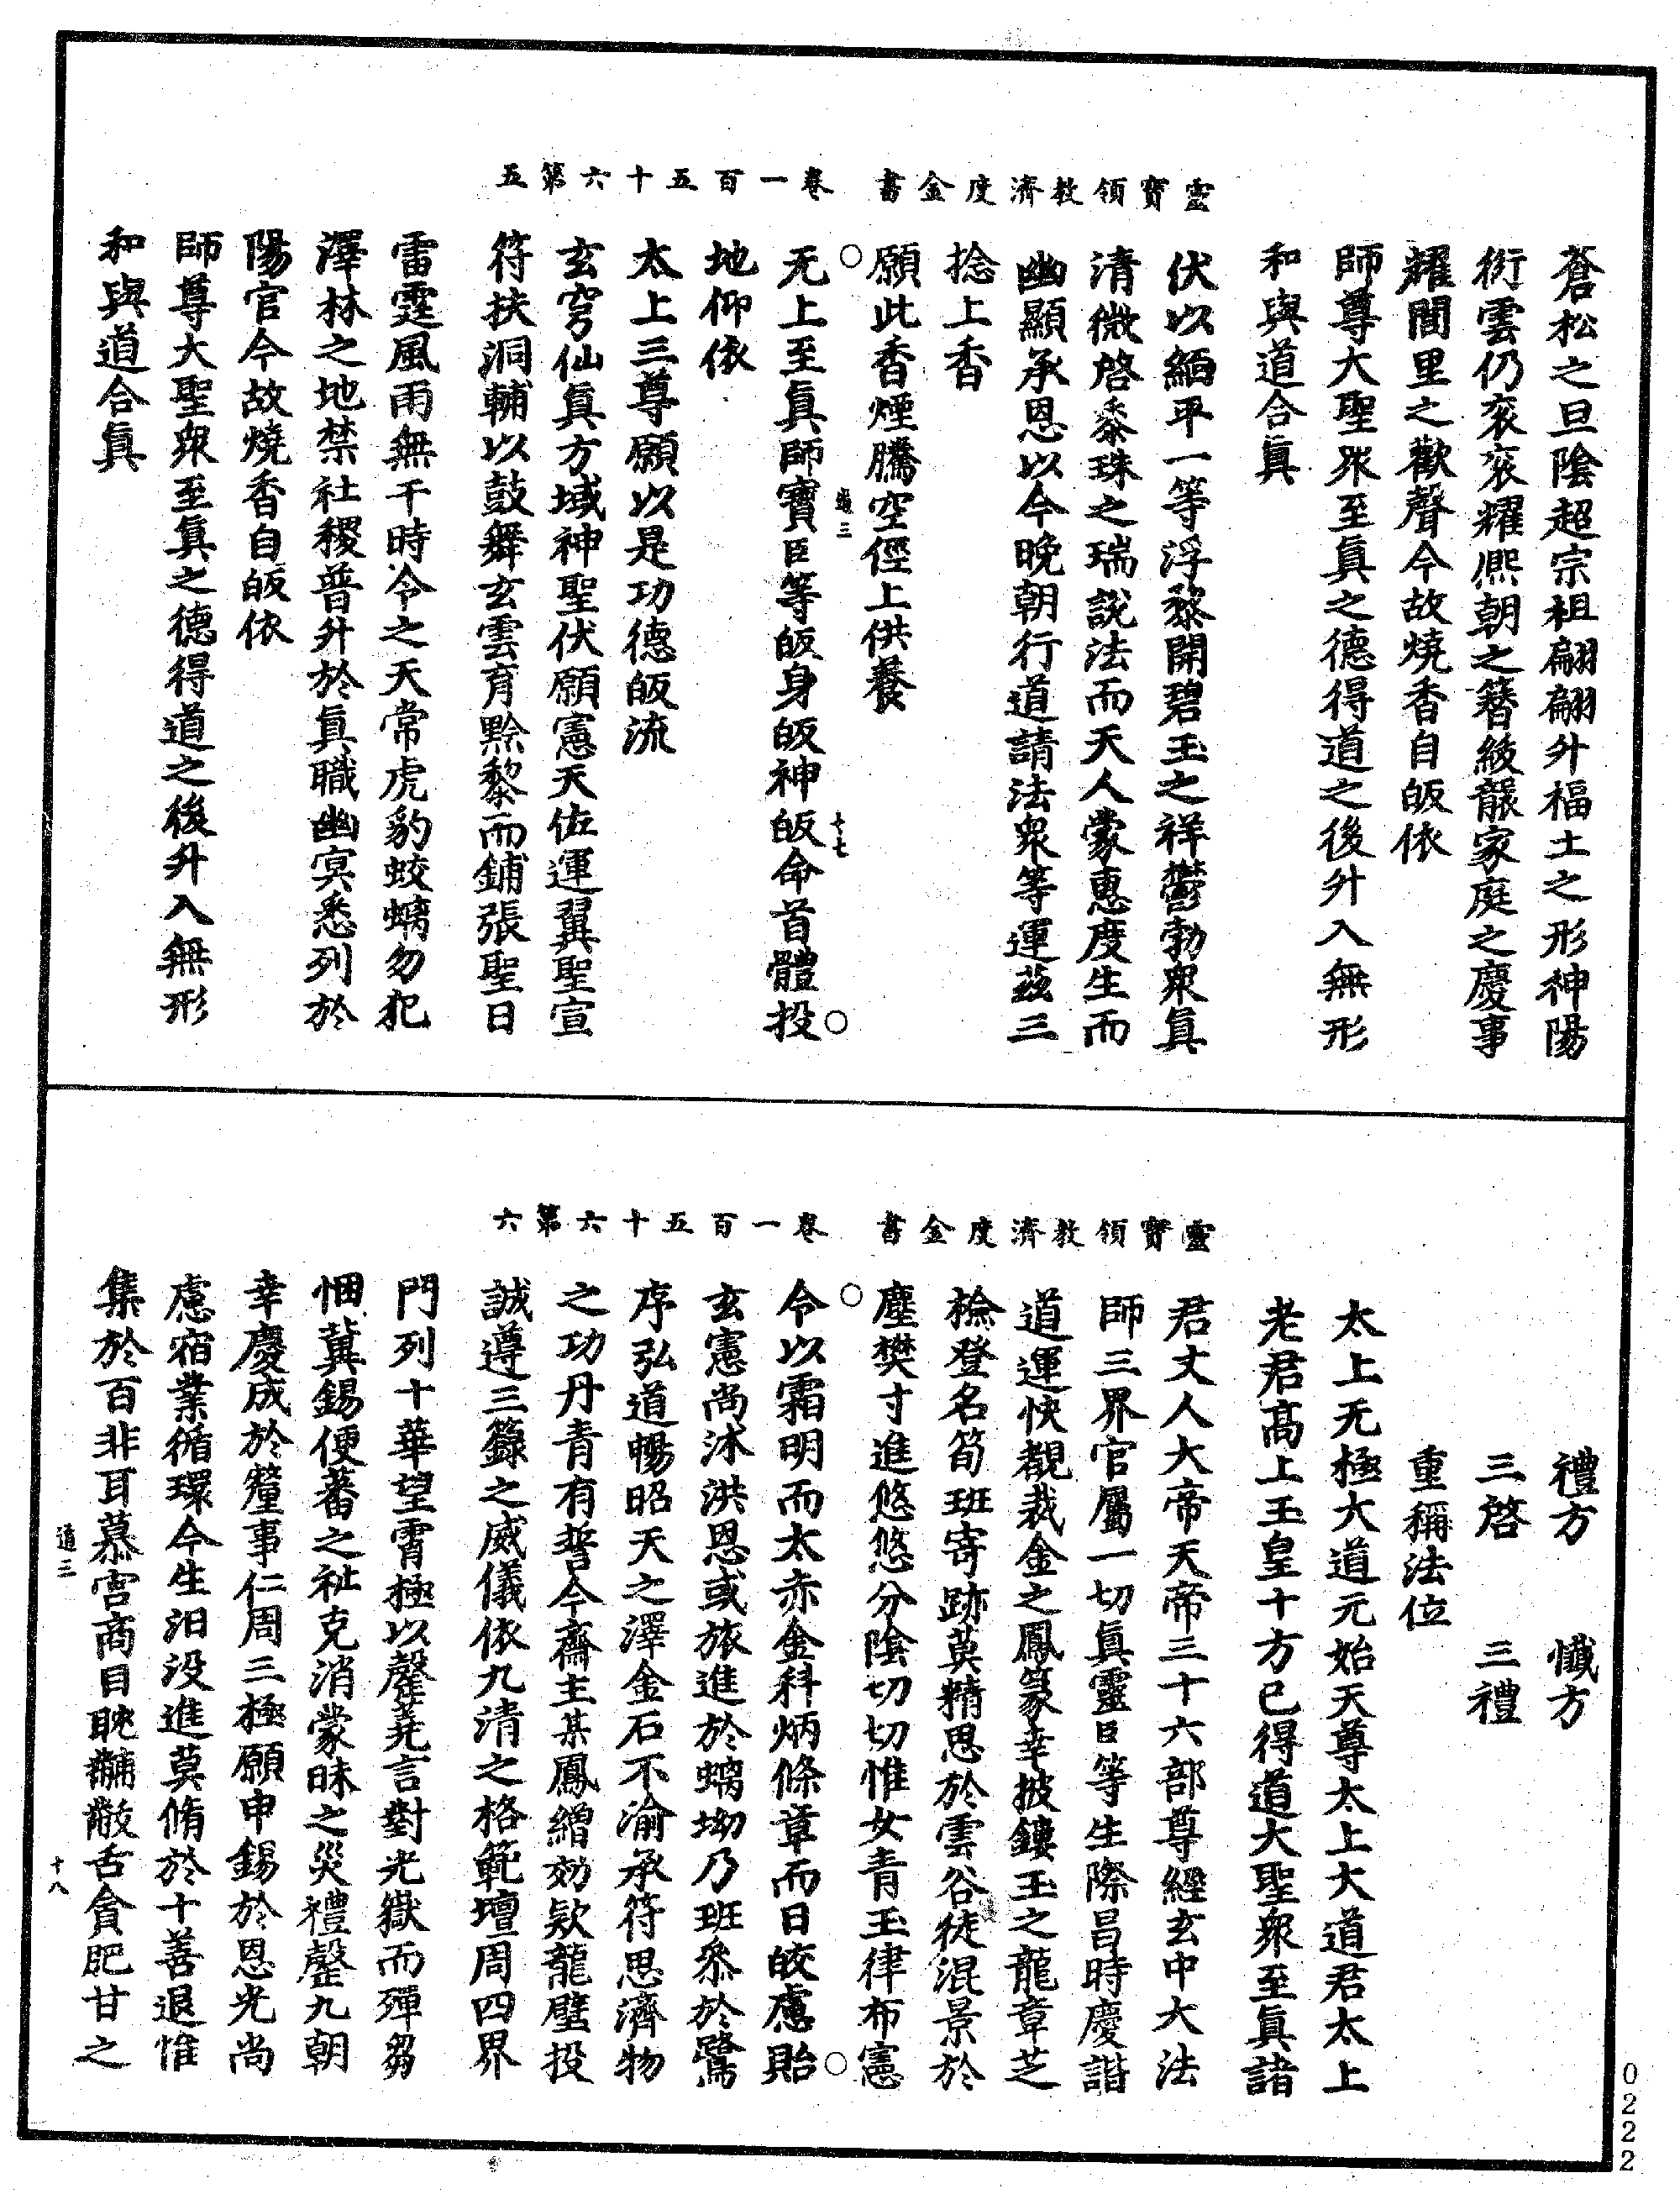 靈寶領教濟度金書　卷一百五十六第五
蒼松之旦陰超宗祖翩翩升福土之形神陽
衍雲仍衮衮耀熈朝之簪紱龍家庭之慶事
耀閭里之歡聲今故燒香自皈依
師尊大聖衆至眞之德得道之後升入無形
和與道合眞
伏以緬平一等浮黎開碧玉之祥鬱勃衆眞
清微啓黍珠之瑞説法而天人蒙惠度生而
幽顯承恩以今晚朝行道請法衆等運茲三
捻上香
願此香煙騰空徑上供養
无上至眞師寶臣等皈身皈神皈命首體投
地仰依
太上三尊願以是功德皈流
玄穹仙眞方域神聖伏願憲天佐運翼聖宣
符扶洞輔以鼓舞玄雲育黔黎而鋪張聖日
雷霆風雨無干時令之天常虎豹蛟螭勿犯
澤林之地禁社稷普升於眞職幽冥悉列於
陽官今故燒香自皈依
師尊大聖衆至眞之德得道之後升入無形
和與道合眞
道三　十七
靈寶領教濟度金書　卷一百五十六第六
禮方　懺方
三啓　三禮
重稱法位
太上无極大道元始天尊太上大道君太上
老君高上玉皇十方已得道大聖衆至眞諸
君丈人大帝天帝三十六部尊經玄中大法
師三界官屬一切眞靈臣等生際昌時慶諧
道運快覩裁金之鳳篆幸披鏤玉之龍章芝
檢登名筍班寄跡英精思於雲谷徒混景於
塵樊寸進悠悠分陰切切惟女青玉律布憲
令以霜明而太赤金科炳條章而日皎慮貽
玄憲尚沐洪恩或旅進於螭坳乃班叅於鷺
序弘道暢昭天之澤金石不渝承符思濟物
之功丹青有誓今齋主某鳳繒効欵龍壁投
誠遵三籙之威儀依九清之格範壇周四界
門列十華望霄極以罄蕘言對光嶽而殫芻
悃冀錫便蕃之祉克消蒙昧之災禮罄九朝
幸慶成於釐事仁周三極願申錫於恩光尚
慮宿業循環今生汨没進莫脩於十善退惟
集於百非耳慕宫商目眈黼黻舌貪肥甘之
道三　十八
0222